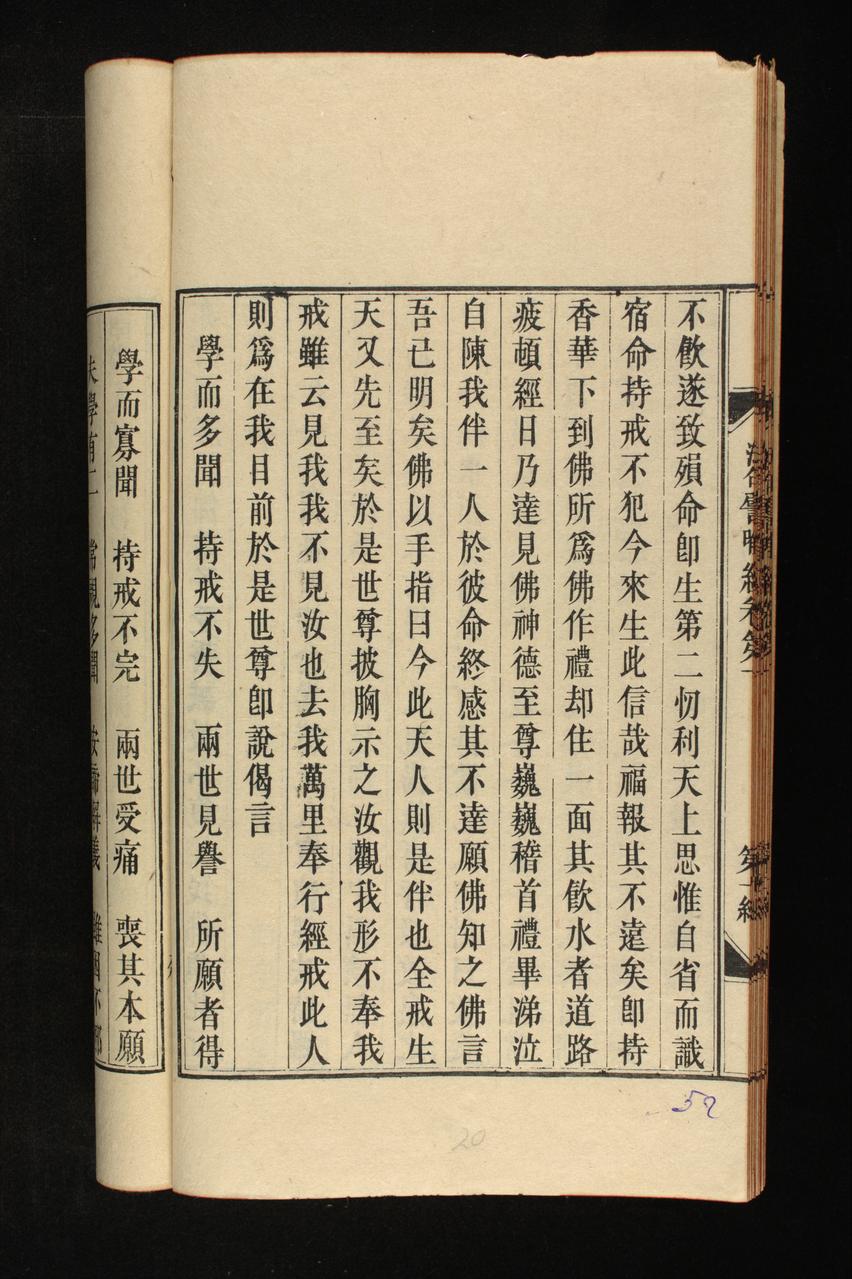 不飲遂致殞命卽生第二忉利天上思惟自省而識
宿命持戒不犯今來生此信哉福報其不遠矣卽持
香華下到佛所爲佛作禮却住一面其飲水者道路
疲頓經日乃達見佛神德至尊巍巍稽首禮畢涕泣
自陳我伴一人於彼命終感其不達願佛知之佛言
吾已明矣佛以手指曰今此天人則是伴也全戒生
天又先至矣於是世尊披胸示之汝觀我形不奉我
戒雖云見我我不見汝也去我萬里奉行經戒此人
則爲在我目前於是世尊卽說偈言
學而多聞 持戒不失 兩世見譽 所願者得
學而寡聞 持戒不完 兩世受痛 喪其本願
第一經
52
20